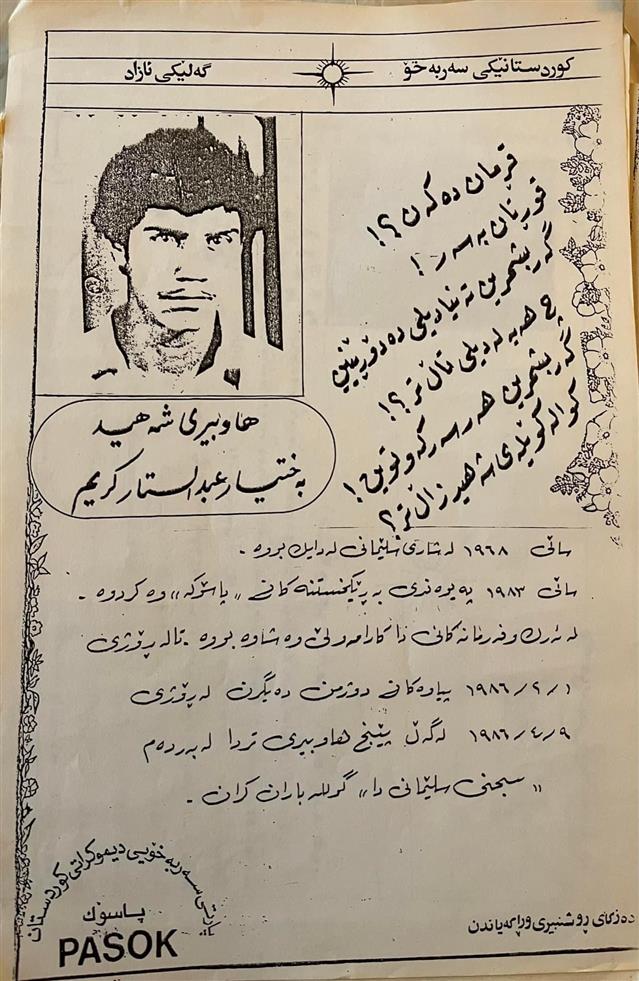 كوردستانێكی سەربەخۆ
گەلێكی ئازاد
قڕمان دەكەن ؟!
قوڕتان بەسەر !
گەر بشمرین تەنیا دیلی دەدۆڕێنین
چ هەیە لە دیلی تاڵ تر ؟!
گەر بشمرین هەر سەركەوتوین !
كوا لە كۆیلەی شەهید زاڵ تر ؟
هاوبیری شەهید
بەختیار عبدالستار كریم
ساڵی ١٩٦٨ لە شاری سلێمانی لەدایك بووە -
ساڵی ١٩٨٣ پەیوەندی بە ڕێكخستنەكانی «پاسۆك»ەوە كردوە -
لە ئەرك و فەرمانەكانی دا كارامە و لێ وەشاوە بووە - تا لە ڕۆژی
١/٢/١٩٨٦ پیاوەكانی دوژمن دەیگرن لە ڕۆژی
٩/٤/١٩٨٦ لەگەڵ پێنج هاوبیری تردا لەبەردەم
«سجنی سلێمانی دا» گوللەباران كران -
پارتی سەربەخۆیی دیموكراتی كوردستان
پاسۆك
PASOK
دەزگای ڕوشنبیری و ڕاگەیاندن